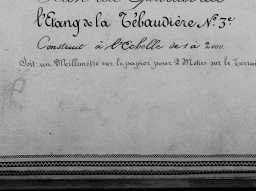 l'Etang de la Tébaudière N.º 3.e
Construit à l'Echelle de 1 à 2000.
Soit: un Millimètre sur le papier pour 2 Mètres sur le Terrain